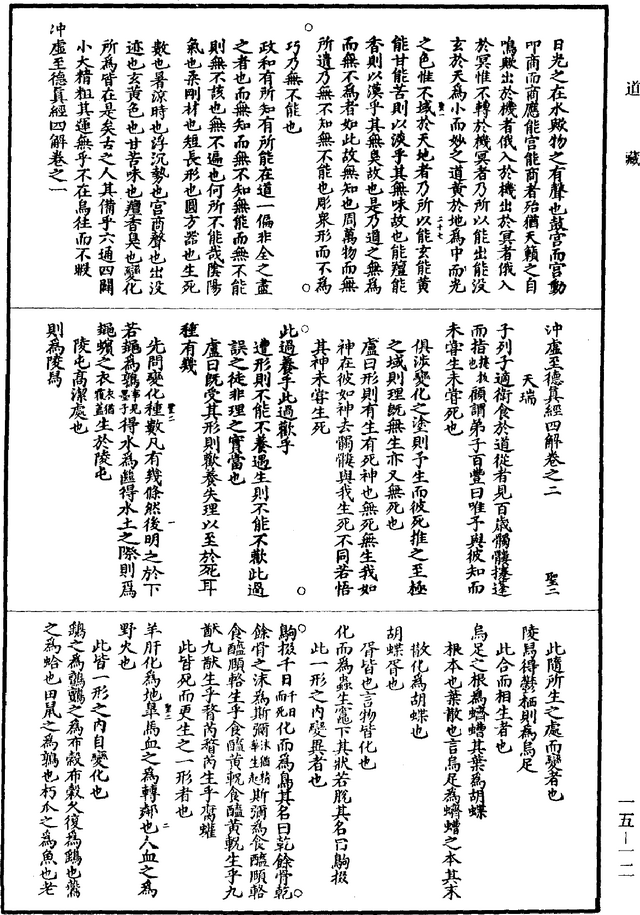 道藏
日光之在水歟物之有聲也鼓宮而宮動
叩商而商應能宮能商者殆猶天籟之自
鳴歟出於機者俄入於機出於冥者俄入
於冥惟不轉於機冥者乃所以能出能沒
玄於天為小而妙之道黃於地為中而光
之色惟不域於天地者乃所以能玄能黃
能甘能苦則以淡乎其無味故也能羶能
香則以漠乎其無臭故也是乃道之無為
而無不為者如此故無知也周萬物而無
所遺乃無不知無能也彫衆形而不為
巧乃無不能也
政和有所知有所能在道一偏非全之盡
之者也而無知而無不知無能而無不能
則無不該也無不遍也何所不能哉陰陽
氣也柔剛材也短長形也圓方器也生死
數也暑涼時也浮沉勢也宮商聲也出沒
迹也玄黃色也甘苦味也羶香臭也變化
所為皆在是矣古之人其備乎六通四闢
小大精粗其運無乎不在烏往而不暇
冲虛至德真經四解卷之一
冲虛至德真經四解卷之二 聖二
天瑞
子列子適衛食於道從者見百歲髑髏攓蓬
而指攓拔也顧謂弟子百豐曰唯予與彼知而
未嘗生未嘗死也
俱涉變化之塗則予生而彼死推之至極
之域則理既無生亦又無死也
盧曰形則有生有死神也無死無生我如
神在彼如神去髑髏與我生死不同若悟
其神未嘗生死
此過養乎此過歡乎
遭形則不能不養遇生則不能不歡此過
誤之徒非理之實當也
盧曰既受其形則歡養失理以至於死耳
種有幾
先問變化種數凡有幾條然後明之於下
若䵷為鶉事見墨子得水為㡭得水土之際則為
䵷蠙之衣衣猶覆蓋生於陵屯
陵屯高潔處也
則為陵舃
此隨所生之處而變者也
陵舃得鬱栖則為烏足
此合而相生者也
烏足之根為蠐螬其葉為胡蝶
根本也葉散也言烏足為蠐螬之本其末
散化為胡蝶也
胡蝶胥也
胥皆也言物皆化也
化而為蟲生竈下其狀若脫其名曰鴝掇
此一形之內變異者也
鴝掇千日千日而死化而為鳥其名曰乾餘骨乾
餘骨之沫為斯彌沫猶精華生起斯彌為食醯頤輅
食醯頤輅生乎食醯黃軦食醯黃軦生乎九
猷九猷生乎瞀芮瞀芮生乎腐蠸
此皆死而更生之一形者也
羊肝化為地皐馬血之為轉鄰也人血之為
野火也
此皆一形之內自變化也
鷂之為鸇鸇之為布穀布穀久復為鷂也鷰
之為蛤也田鼠之為鶉也朽瓜之為魚也老
一五－一二